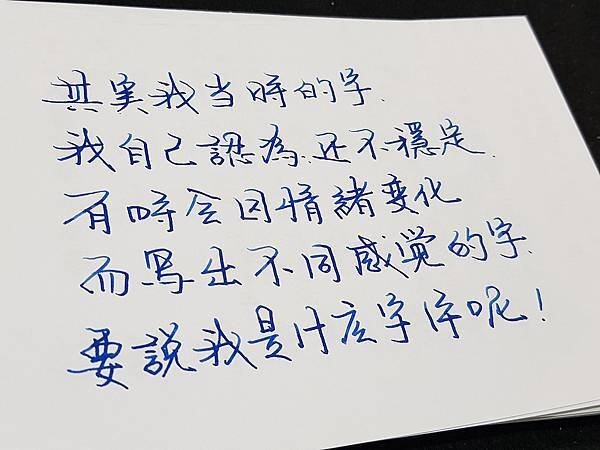 其実我当時的字.
我自己認為.还不穩定.
有時会因情諸变化
而写出不同感覚的字.
要說我是什么字体呢!